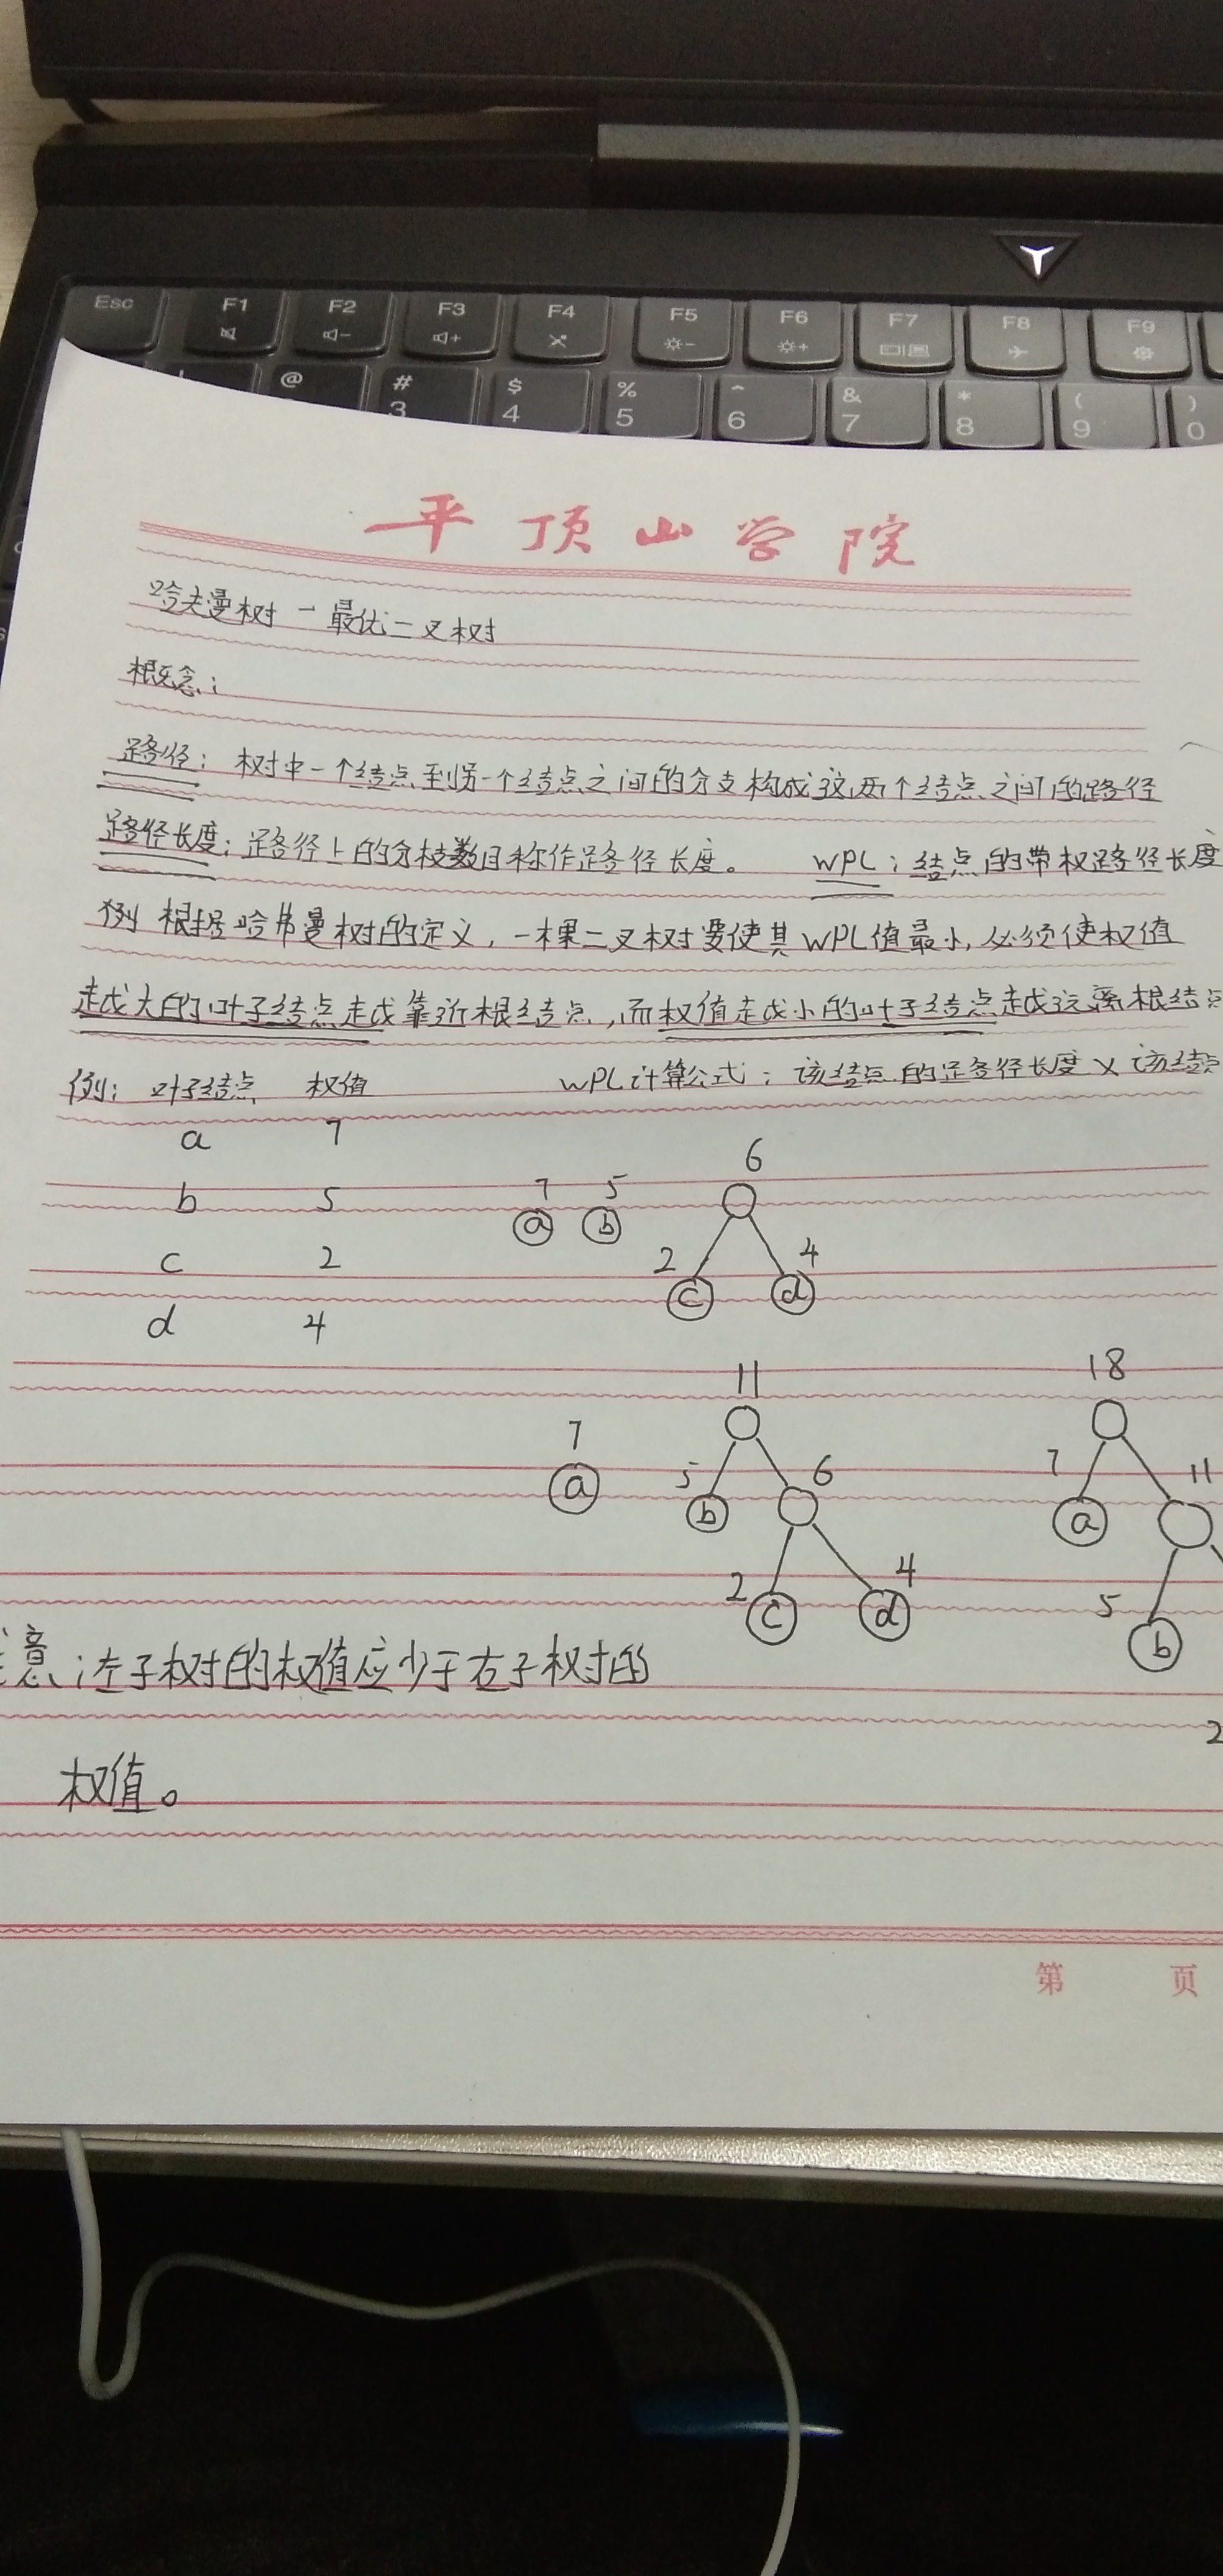 Esc F1 F2 F3 F4 F5 F6 F7 F8 F9
@ # $ % ^ & * ( )
3 4 5 6 7 8 9 0
平顶山学院
哈夫曼树 — 最优二叉树
概念:
路径: 树中一个结点到另一个结点之间的分支构成这两个结点之间的路径
路径长度: 路径上的分枝数目称作路径长度。 WPL: 结点的带权路径长度
例 根据哈弗曼树的定义, 一棵二叉树要使其WPL值最小, 必须使权值
越大的叶子结点越靠近根结点, 而权值越小的叶子结点越远离根结点
例: 叶子结点 权值 WPL计算公式: 该结点的路径长度 × 该结点
a 7
b 5
c 2
d 4
7 5 6
a b
2 4
c d
7 11 18
a
5 6
b
2 4
c d
7 11
a
5
b
2
意: 左子树的权值应少于右子树的
权值。
第 页